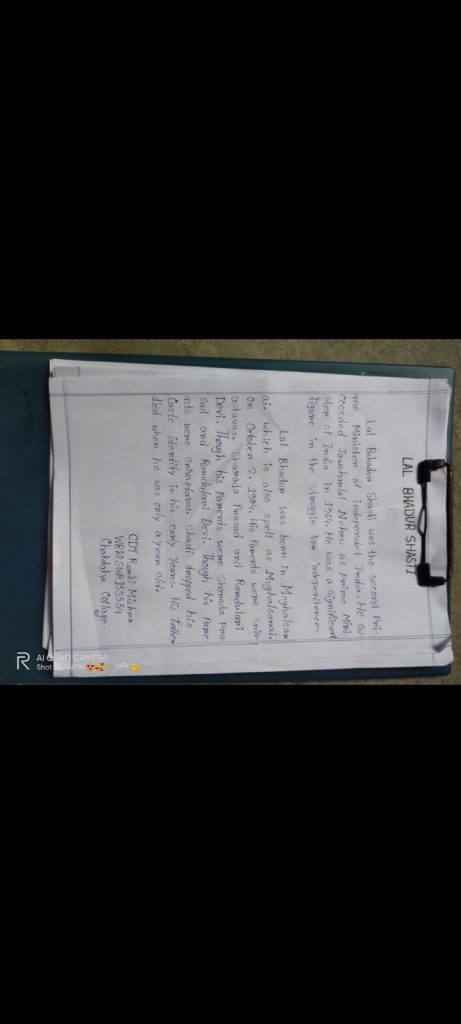 LAL BHADUR SHASTI
Lal Bahadur Shasti was the second Pri-
me Minister of independet India. He su-
cceeded Jawaharlal Nehru as prime Mini-
ster of India in 1964. He was a significant
figure in the struggle for independence.
Lal Bhadur was born in Moghalsari
ai. Which is also spelt as Mughalsarai.
on October 2. 1904. His Parents were sriv
astavas. Sharada Prasad and Ramdulari
Devi. Though his parents were Sharada Pra
sad and Ramdulari Devi. Though his pare
nts were srivastavas. Shasti dropped his
Caste identity in his early years. His father
died when he was only a year old.
CDT Mishra
WB20SWA153554
Chakdaha Collage.
AI QUAD CAMERA
Shot